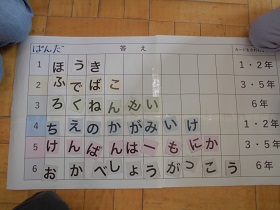 ぱんだ 答え
1 ほうき 1・2年
2 ふでばこ 3・5年
3 ろくねんせい 6年
4 ちえのかがみいけ 1・2年
5 けんばんはーもにか 3・5年
6 おかべしょうがっこう 6年